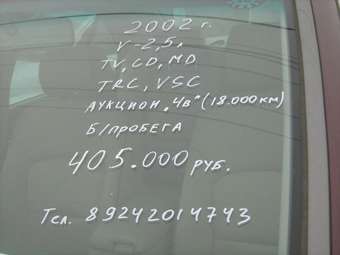 2002 г.
V-2,5,
TV, CD, MD
TRC, VSC
АУКЦИОН „4В" (18.000 КМ)
Б/ПРОБЕГА
405.000 РУБ.
Тел. 89242014743